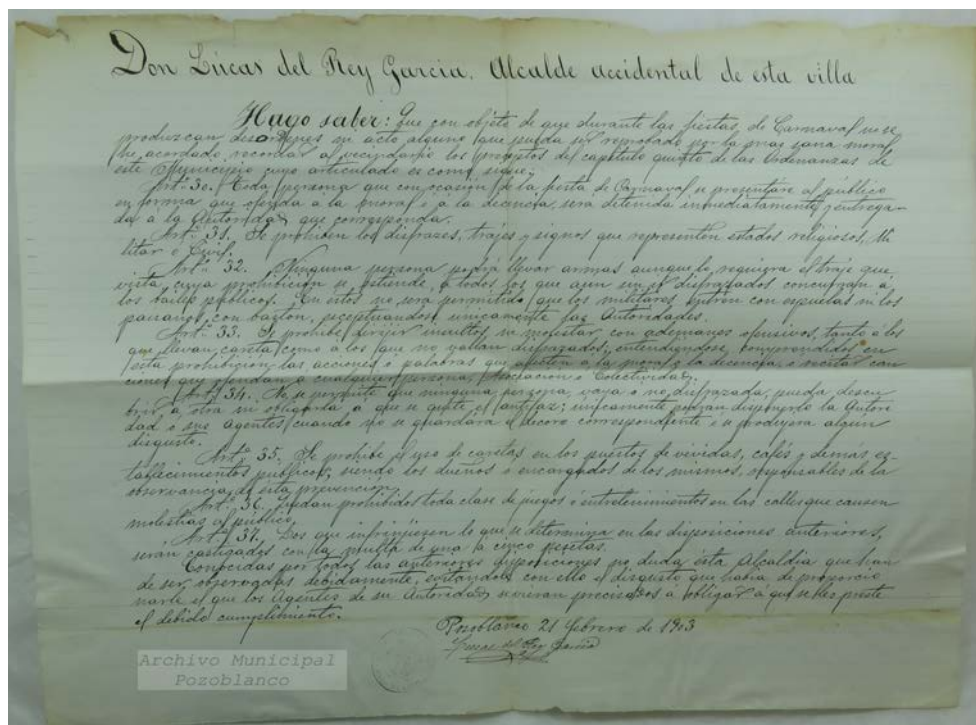 Don Lúcas del Rey Garcia. Alcalde accidental de esta villa
Hago saber: Que con objeto de que durante las fiestas de Carnaval no se
produzcan desordenes ni acto alguno que pueda ser reprobado por la mas sana moral
he acordado recordar al vecindario los preceptos del capítulo quinto de las Ordenanzas de
este Municipio cuyo articulado es como sigue;
Artº 30. Toda persona que con ocasion de la fiesta de Carnaval se presentare al público
en forma que ofenda a la moral o a la decencia, sera detenida inmediatamente y entrega-
da a la Autoridad que corresponda.
Artº 31. Se prohiben los disfrazes, trajes y signos que representen estados religiosos, Mi
litar o Civil.
Artº 32. Ninguna persona podrá llevar armas aunque lo requiera el traje que
vista cuya prohibicion se estiende, a todos los que aun sin disfrazados concurran a
los bailes públicos. En estos no sera permitido que los militares entren con espuelas ni los
paisanos con baston, esceptuandose unicamente las Autoridades.
Artº 33. Se prohibe dirijir insultos ni molestar con ademanes ofensivos, tanto á los
que llevan careta como a los que no vallan disfrazados, entendiendose comprendidos en
esta prohibicion, las acciones o palabras que afecten a la moral y la decencia, o recitar can
ciones que ofendan a cualquier persona, Asociacion o Colectividad.
Artº 34. No se permite que ninguna persona, vaya o no disfrazada, pueda descu
brir a otra ni obligarla a que se quite el antifaz; unicamente podran disponerlo la Autori
dad o sus Agentes cuando no se guardara el decoro correspondiente o se produjera algun
disgusto.
Artº 35. Se prohibe el uso de caretas en los puestos de vevidas, cafés y demas es-
tablecimientos públicos, siendo los dueños o encargados de los mismos, responsables de la
observancia de esta prevencion.
Artº 36. Quedan prohibidos toda clase de juegos o entretenimientos en las calles que causen
molestias al público.
Artº 37. Los que infrinjiesen lo que se determina en las disposiciones anteriores,
serán castigados con la multa de una a cinco pesetas.
Conocidas por todos las anteriores disposiciones no duda esta Alcaldia que han
de ser observadas debidamente, evitandole con ello el disgusto que habia de proporcio
narle el que los Agentes de su Autoridad se vieran precisados a obligar a que se les preste
el debido cumplimiento.
Pozoblanco 21 febrero de 1903
Lucas del Rey Garcia
Archivo Municipal
Pozoblanco